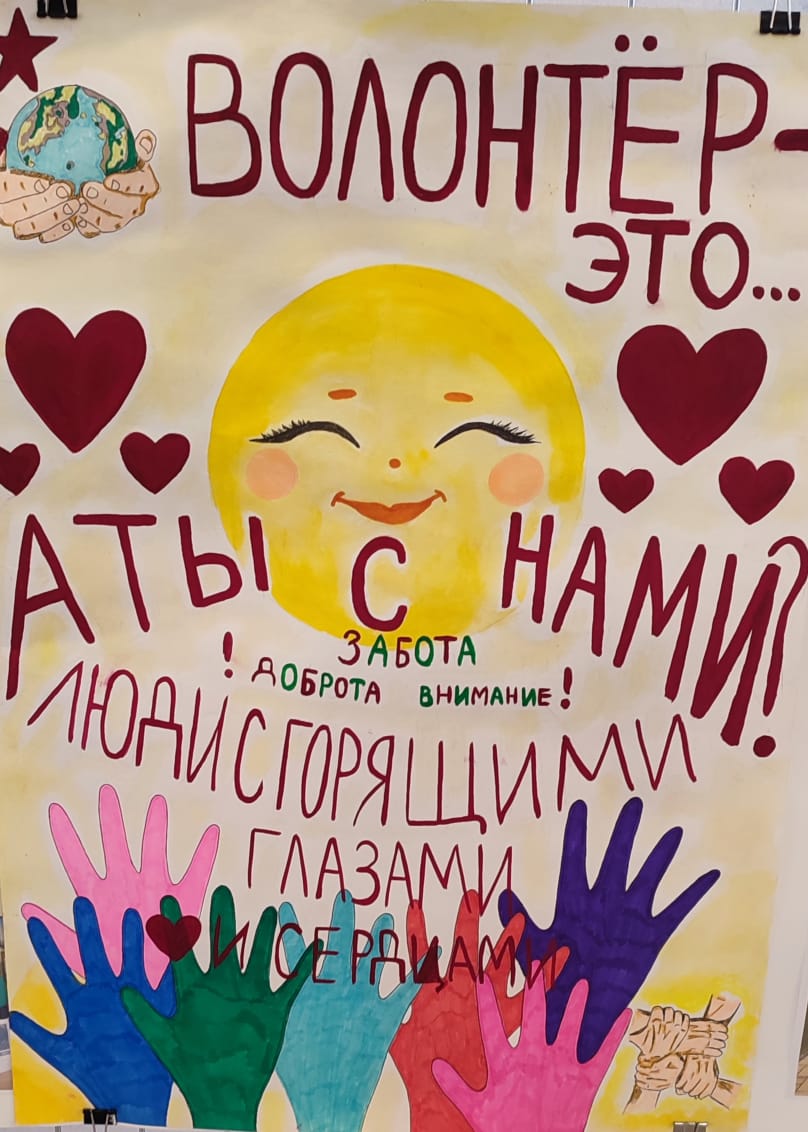 ВОЛОНТЁР-
ЭТО...
А ТЫ С НАМИ?
ЗАБОТА
! ДОБРОТА ВНИМАНИЕ!
ЛЮДИ С ГОРЯЩИМИ
ГЛАЗАМИ
И СЕРДЦАМИ